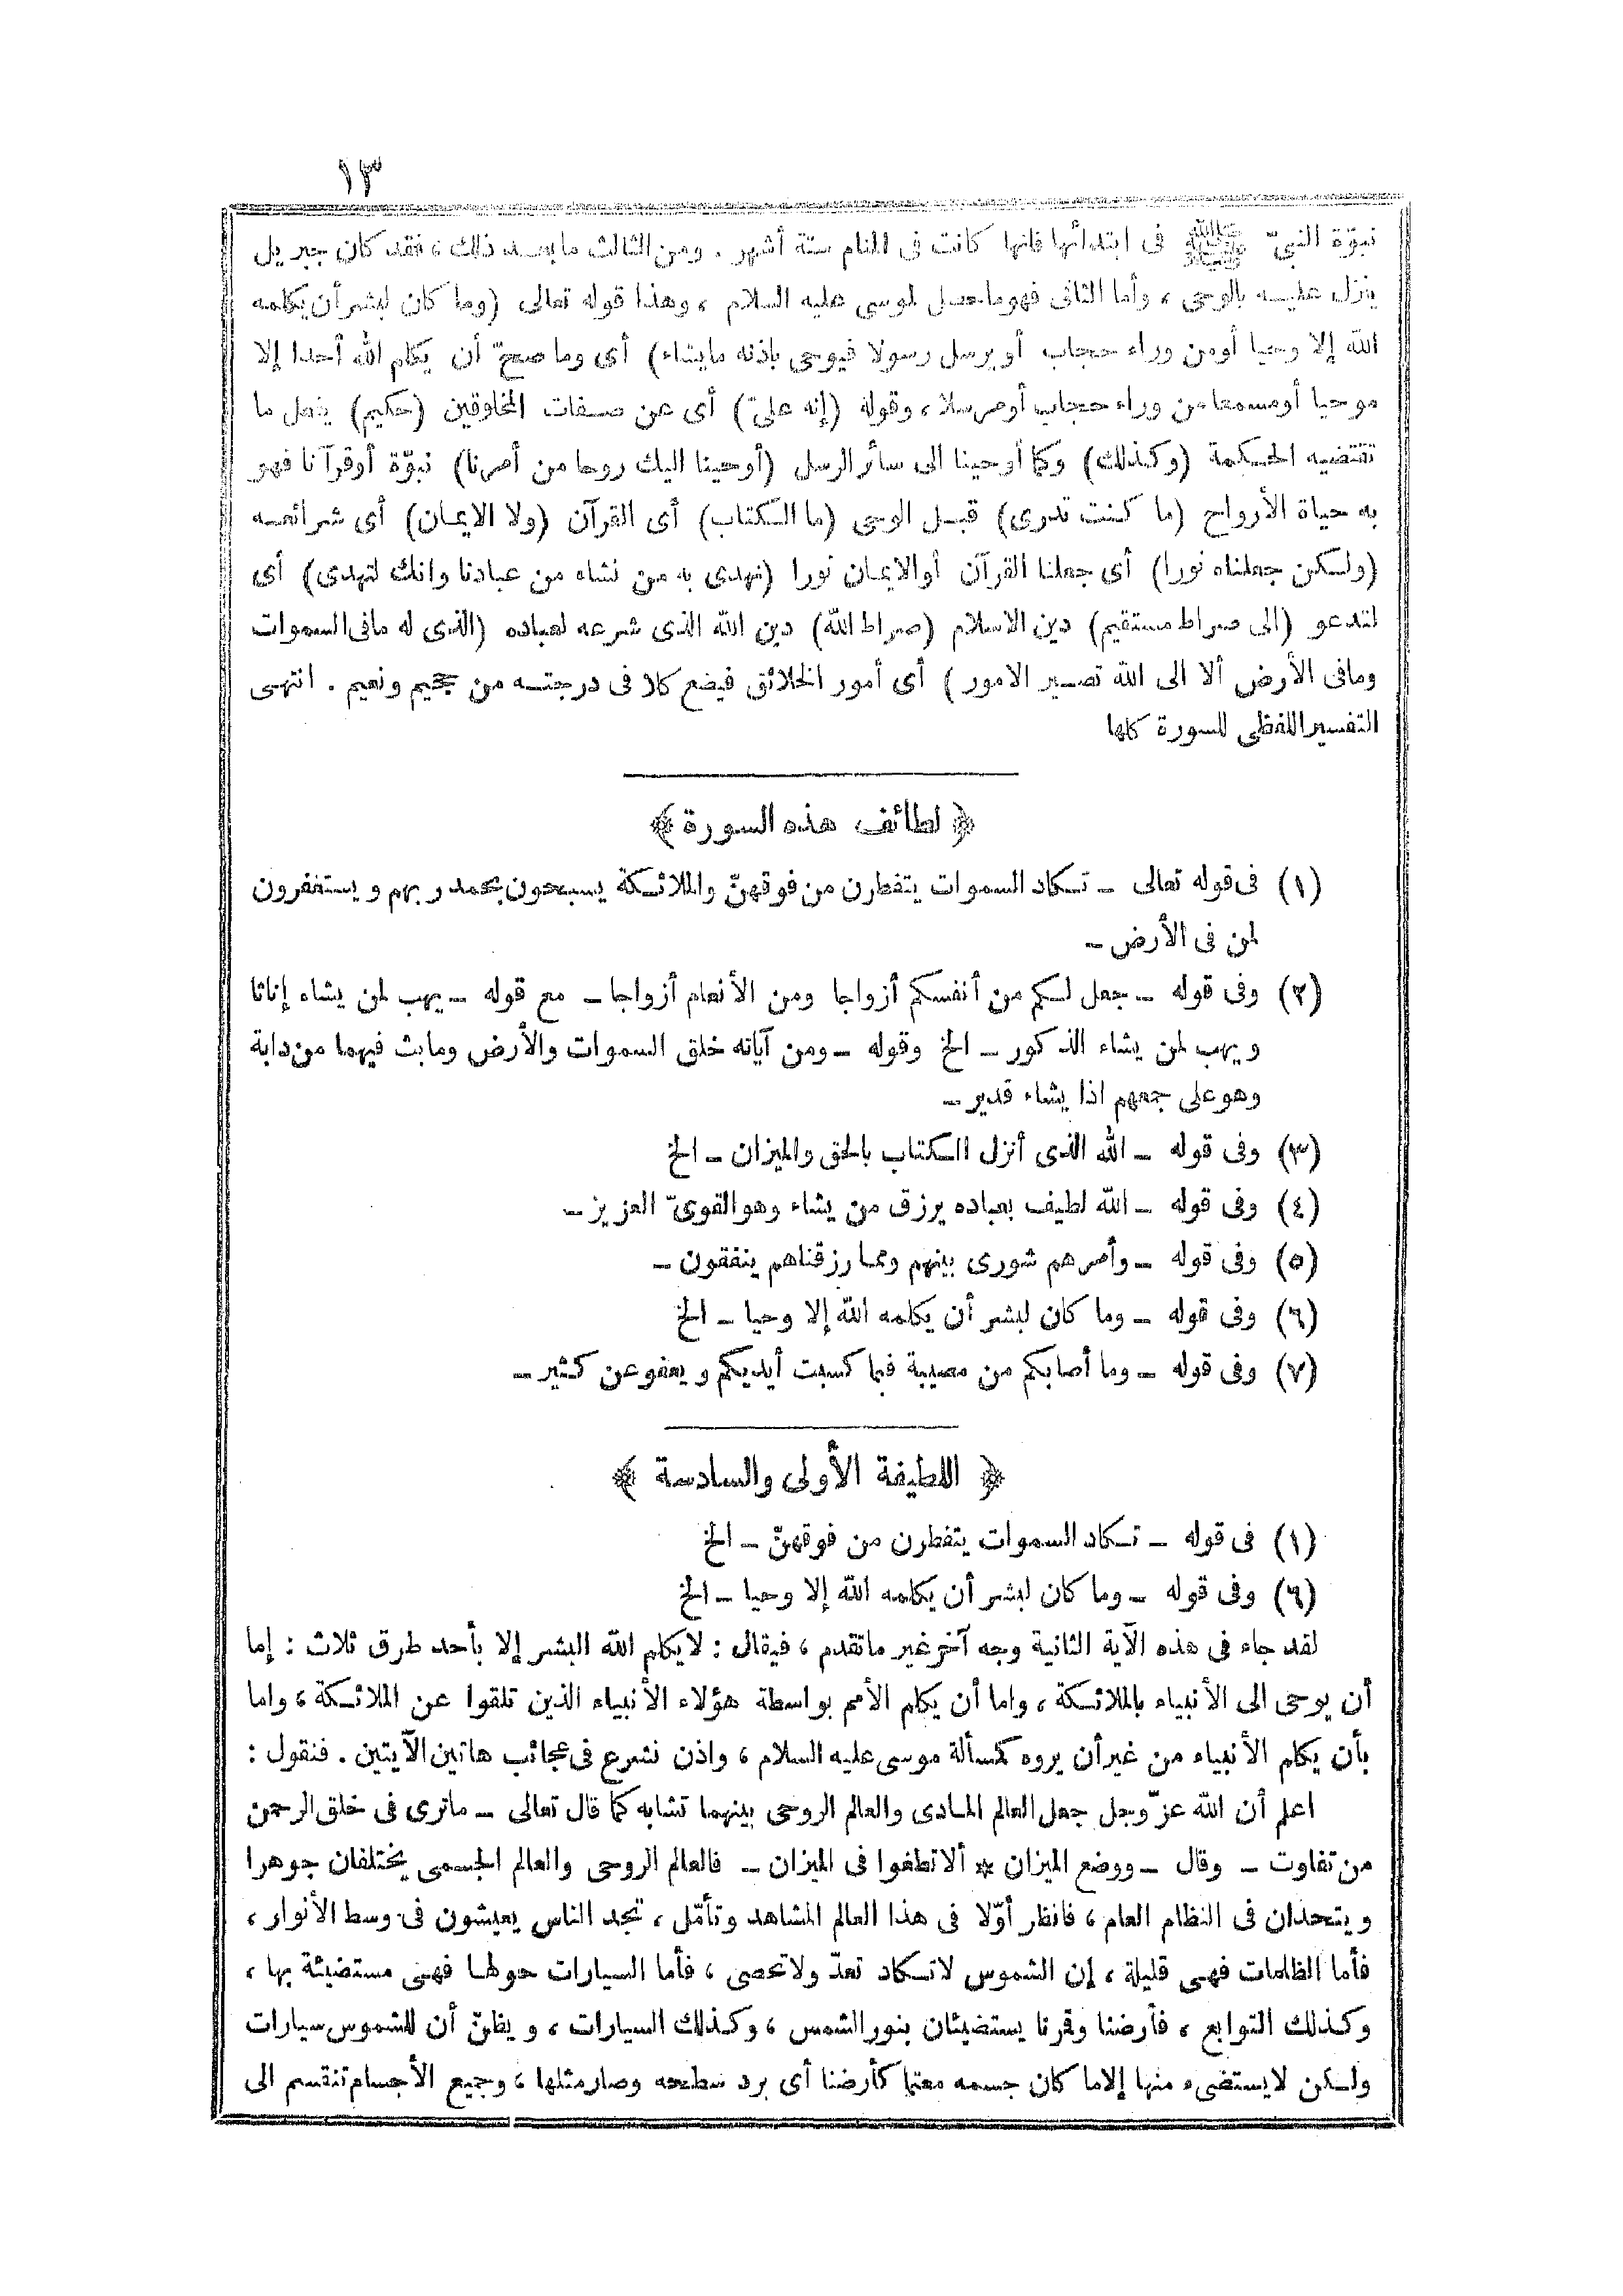 ١٣
نبوّة النبىّ ﷺ فى ابتدائها فانها كانت فى المنام ستة أشهر . ومن الثالث مابعد ذلك ، فقد كان جبريل
ينزل عليه بالوحى ، وأما الثانى فهوماحصل لموسى عليه السلام ، وهذا قوله تعالى (وما كان لبشر أن يكلمه
الله إلا وحيا أومن وراء حجاب أو يرسل رسولا فيوحى باذنه مايشاء) أى وما صحّ أن يكلم الله أحدا إلا
موحيا أومسمعا من وراء حجاب أومرسلا ، وقوله (إنه علىّ) أى عن صفات المخلوقين (حكيم) يفعل ما
تقتضيه الحكمة (وكذلك) وكما أوحينا الى سائر الرسل (أوحينا اليك روحا من أمرنا) نبوّة أوقرآنا فهو
به حياة الأرواح (ما كنت تدرى) قبل الوحى (ما الكتاب) أى القرآن (ولا الايمان) أى شرائعه
(ولكن جعلناه نورا) أى جعلنا القرآن أوالايمان نورا (نهدى به من نشاء من عبادنا وانك لتهدى) أى
لتدعو (الى صراط مستقيم) دين الاسلام (صراط الله) دين الله الذى شرعه لعباده (الذى له مافى السموات
ومافى الأرض ألا الى الله تصير الامور) أى أمور الخلائق فيضع كلا فى درجته من جحيم ونعيم . انتهى
التفسير اللفظى للسورة كلها
﴿ لطائف هذه السورة ﴾
(١) فى قوله تعالى ــ تكاد السموات يتفطرن من فوقهنّ والملائكة يسبحون بحمد ربهم ويستغفرون
لمن فى الأرض ــ
(٢) وفى قوله ــ جعل لكم من أنفسكم أزواجا ومن الأنعام أزواجا ــ مع قوله ــ يهب لمن يشاء إناثا
ويهب لمن يشاء الذكور ــ الخ وقوله ــ ومن آياته خلق السموات والأرض ومابث فيهما من دابة
وهو على جمعهم اذا يشاء قدير ــ
(٣) وفى قوله ــ الله الذى أنزل الكتاب بالحق والميزان ــ الخ
(٤) وفى قوله ــ الله لطيف بعباده يرزق من يشاء وهو القوىّ العزيز ــ
(٥) وفى قوله ــ وأمرهم شورى بينهم ومما رزقناهم ينفقون ــ
(٦) وفى قوله ــ وما كان لبشر أن يكلمه الله إلا وحيا ــ الخ
(٧) وفى قوله ــ وما أصابكم من مصيبة فبما كسبت أيديكم ويعفو عن كثير ــ
﴿ اللطيفة الأولى والسادسة ﴾
(١) فى قوله ــ تكاد السموات يتفطرن من فوقهنّ ــ الخ
(٦) وفى قوله ــ وما كان لبشر أن يكلمه الله إلا وحيا ــ الخ
لقد جاء فى هذه الآية الثانية وجه آخر غير ماتقدم ، فيقال : لا يكلم الله البشر إلا بأحد طرق ثلاث : إما
أن يوحى الى الأنبياء بالملائكة ، واما أن يكلم الأمم بواسطة هؤلاء الأنبياء الذين تلقوا عن الملائكة ، واما
بأن يكلم الأنبياء من غير أن يروه كمسألة موسى عليه السلام ، واذن نشرع فى عجائب هاتين الآيتين . فنقول :
اعلم أن الله عزّ وجل جعل العالم المادى والعالم الروحى بينهما تشابه كما قال تعالى ــ ماترى فى خلق الرحمن
من تفاوت ــ وقال ــ ووضع الميزان * ألا تطغوا فى الميزان ــ فالعالم الروحى والعالم الجسمى يختلفان جوهرا
ويتحدان فى النظام العام ، فانظر أوّلا فى هذا العالم المشاهد وتأمّل ، تجد الناس يعيشون فى وسط الأنوار ،
فأما الظلمات فهى قليلة ، إن الشموس لاتكاد تعدّ ولاتحصى ، فأما السيارات حولها فهى مستضيئة بها ،
وكذلك التوابع ، فأرضنا وقمرنا يستضيئان بنور الشمس ، وكذلك السيارات ، ويظنّ أن للشموس سيارات
ولكن لايستضىء منها إلاما كان جسمه معتما كأرضنا أى برد سطحه وصار مثلها ، وجميع الأجسام تنقسم الى